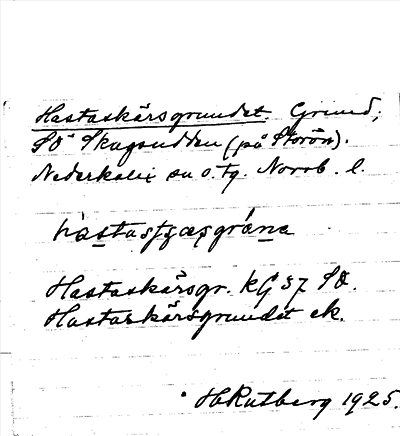 Hastaskärsgrundet. Grund,
SO Skagsudden (på Storön).
Nederkalix sn o. tg. Norrb. l.
Hastaskärsgr. KG 37 SO.
Hastaskärsgrundet ek.
HRutberg 1925.